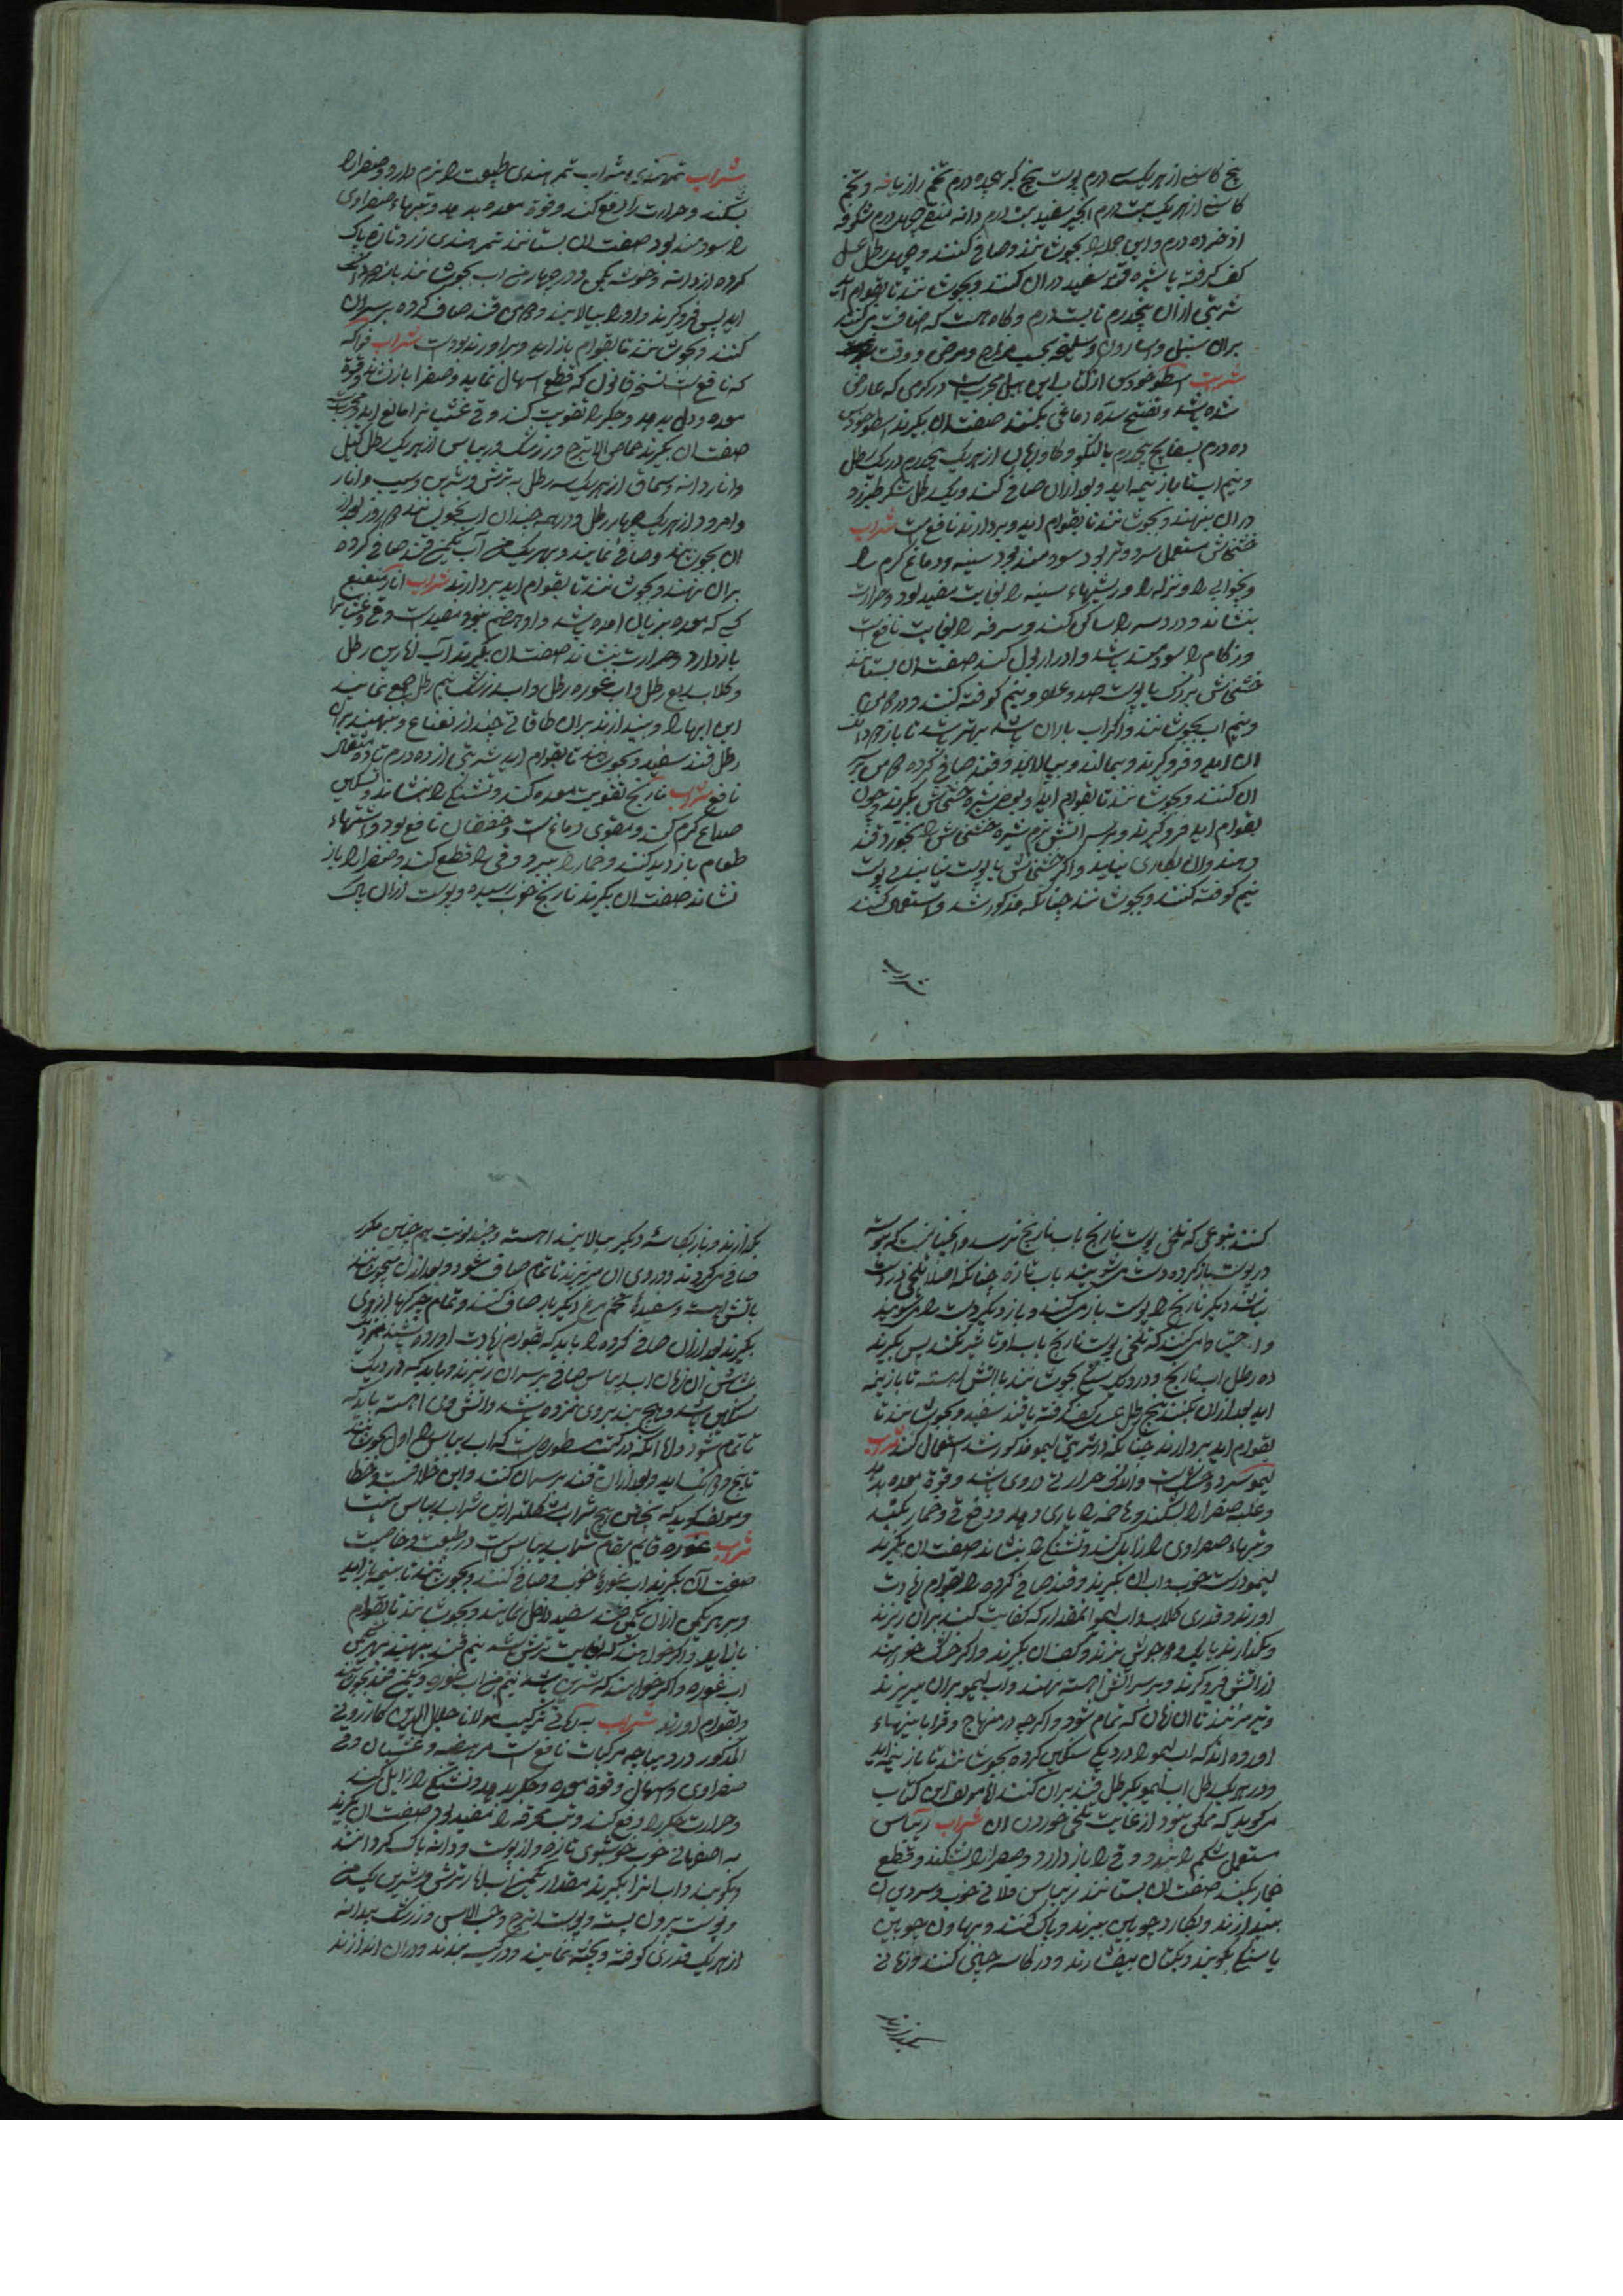 بیخ کاسنی از هر یک سی درم پوست بیخ کبر پنجده درم تخم رازیانه و تخم
کاسنی از هر یک بیست درم انجیر سفید بیست درم دانه منقی چهل درم شکوفه
اذخر ده درم و این جمله را بجوشانند و صافی کنند و چهار رطل عسل
کف گرفته یا شیره قند سفید در ان کنند و بجوشانند تا بقوام اید
شربتی ازان پنجدرم تا بیست درم و کاه هست که اضافت میکنند
بران سنبل و اسارون و سلیخه بحسب مزاج و مرض و وقت
شربت اسطوخودوس از کتاب این
شده باشد و تفتیح سده دماغی بکند صفت ان بگیرند اسطوخودوس
ده درم بسفایج پنجدرم بالنکو و کاوزبان از هر یک پنجدرم در یک رطل
و نیم اب تا باز نیمه اید و بعد ازان صافی کنند و یک رطل شکر طبرزد
در ان بنهند و بجوشانند تا بقوام اید و بردارند نافع است شراب
خشخاش مستعمل سرد و تر بود سودمند بود سینه و دماغ کرم را
و بیخوابی را و نزله را و ریشهاء سینه را بغایت مفید بود و حرارت
بنشاند و درد سر را ساکن کند و سرفه را بغایت نافع است
و زکام را سودمند باشد و ادرار بول کند صفت ان بستانند
خشخاش بزرک با پوست صد عدد و نیم کوفته کنند و در
و نیم اب بجوشانند و اکر اب باران باشد بهتر باشد تا باز
ان اید و فرو گیرند و بمالند و بپالایند و قند صافی کرده
ان کنند و بجوشانند تا بقوام اید و بعوض شیره خشخاش بگیرند و چون
بقوام اید فرو گیرند و بر سر اتش نرم شیره خشخاش را بخورد قند
دهند و ان بکاری نیاید و اگر خشخاش با پوست نیابند بی پوست
نیم کوفته کنند و بجوشانند چنانکه مذکور شد و استعمال کنند
شراب
شراب تمرهندی شراب تمر هندی طبیعت را نرم دارد و صفرا را
بشکند و حرارت را دفع کند و قوة معده بدهد و تبهاء صفراوی
را سودمند بود صفت ان بستانند تمر هندی زرد تازه پاک
کرده از دانه و خوشه یکمن و در چهار من اب بجوشانند
اید پس فرو گیرند و او را بپالایند و قند صاف کرده بر سر ان
کنند و بجوشانند تا بقوام باز اید و بردارند شراب فواکه
که نافع است نسخه قانون که قطع اسهال نماید و صفرا باز نشاند و قوة
معده و دل بدهد و جکر را تقویت کند و قی و غثیانرا مانع اید
صفت ان بگیرند حماض الاترج و زرشک و ریباس از هر یک رطل
و انار دانه و سماق از هر یک سه رطل به ترش و شیرین و سیب و انار
و امرود از هر یک چهار رطل و در همه چندان اب بجوشانند روز بعد از
ان بجوشانند و صافی نمایند و بهر یک من آب یکمن قند صافی کرده
بران نهند و بجوشانند تا بقوام اید بردارند شراب انار منعنع
کسی که معده بزیان امده باشد و او هضم نبود مفید است و قی و غثیانرا
باز دارد و حرارت بنشاند صفت ان بگیرند آب انارین رطل
و کلاب ربع رطل و اب غوره رطل و اب زرشک نیم رطل جمع نمایند
این ابها را و بیندازند بران طاقاتی چند از نعناع و بنهند بران
رطل قند سفید و بجوشانند تا بقوام اید شربتی از ده درم تا ده مثقال
نافع شراب نارنج تقویت معده کند و تشنگی را بنشاند و تسکین
صداع کرم کند و مقوی دماغست و خفقان نافع بود و اشتهاء
طعام بازدید کند و خمار را ببرد و قی را قطع کند و صفرا را باز
نشاند صفت ان بگیرند نارنج خوب رسیده و پوست ازان پاک
کنند بنوعی که تلخی پوست نارنج باب نارنج نرسد و انچنانست که
در پوست باز کرده دست بشویند باب تازه چنانکه اصلا تلخی در دست
نباشد دیکر نارنج را پوست باز میکنند و باز دیکر دست را میشویند
و احتیاط میکنند که تلخی پوست نارنج باب او تاثیر نکند پس بگیرند
ده رطل اب نارنج و در دیک سنکی بجوشانند باتش اهسته تا باز نیمه
اید بعد ازان بکنند پنج رطل عسل کف گرفته یا قند سفید و بجوشانند تا
بقوام اید بردارند چنانکه در شربت لیمو مذکور شد استعمال کنند شراب
لیمو سرد و خشکست و اندک حرارتی در وی باشد و قوة معده بدهد
و غلبه صفرا را بشکند و هاضمه را یاری دهد و دفع قی و خمار بکند
و تبهاء صفراوی را زایل کند و تشنکی را بنشاند صفت ان بگیرند
لیمو درست خوب و اب ان بگیرند و قند صافی کرده را بقوام
اورند و قدری کلاب و اب لیمو انمقدار که کفایت کند بران ریزند
و بگذارند تا یک دو جوش بزند و کف ان بگیرند و اکر خواهند
از اتش فرو گیرند و بر سر اتش اهسته نهند و اب لیمو بران میریزند
و تا ان زمان که تمام شود و اکرچه در منهاج و قرابادینهاء
اورده اند که اب لیمو را در دیکی سنکین کرده بجوشانند تا باز نیمه اید
و در هر یک رطل اب لیمو یکرطل قند بران کنند اما مولف این کتاب
میکوید که ممکن نبود از غایت تلخی خوردن ان شراب ریباس
مستعمل شکم را ببندد و قی را باز دارد و صفرا را بشکند و قطع
خمار بکند صفت ان بستانند ریباس خوب و سر و بن ان
بیندازند و بکارد چوبین ببرند و پاک کنند و بهاون چوبین
یا سنکی بکوبند و بکتان بیفشارند و در کاسه چینی کنند و زمانی
بگذارند
بگذارند و باز بکاسه دیکر بپالایند اهسته و چند نوبت هم چنین مکرر
صافی میکردند و دردی ان میریزند تا تمام صاف شود و بعد ازان بجوشانند
باتش اهسته و سفیده تخم مرغ دیکر بار صاف کنند و تمام چرکها از وی
بگیرند بعد ازان قند صافی کرده را باید که بقوام اورده باشند
اب ریباس صافی بر سر ان ریزند و باید که در دیک
سنکین باشد و هیچ بروی نزده باشد و اتش وی اهسته باید که
تا تمام شود و اما انکه در کتب مسطور است که اب ریباس را اول بجوشانند
تا بنیمه و بعد ازان قند بر سر ان کنند و این خلافست و خطا
و مولف کوید که هیچ شراب مشکلتر ازین شراب ریباس نیست
شراب غوره قایم مقام شراب ریباس است در طبیعت و خاصیت
صفت ان بگیرند اب غوره خوب و صافی کنند و بجوشانند تا بنیمه باز اید
و بر هر یکمن ازان یکمن قند سفید داخل نمایند و بجوشانند تا بقوام
باز اید و اکر خواهند که بغایت ترش باشد نیم من قند بنهند بهر یکمن
اب غوره و اکر خواهند که شیرین باشد نیم من اب غوره و یکمن قند بجوشانند
و بقوام اورند شراب به ترکیب مولانا جلال الدین کازرونی
المذکور در دیباچه مرکبات نافع است مر هیضه و غثیان و قی
صفراوی و اسهال و قوة معده و جکر بدهد و تشنگی را زایل کند
و حرارت جکر را دفع کند و تب محرقه را مفید بود صفت ان بگیرند
به اصفهانی خوب خوشبوی تازه و از پوست و دانه پاک کردانند
و بکوبند و اب انرا بگیرند مقدار یکمن و اب انار ترش و شیرین یکمن
و پوست بیرون پسته و پوست اترج و حب الاس و زرشک بیدانه
از هر یک قدری کوفته و پخته نمایند و در کیسه بندند و در ان اندازند